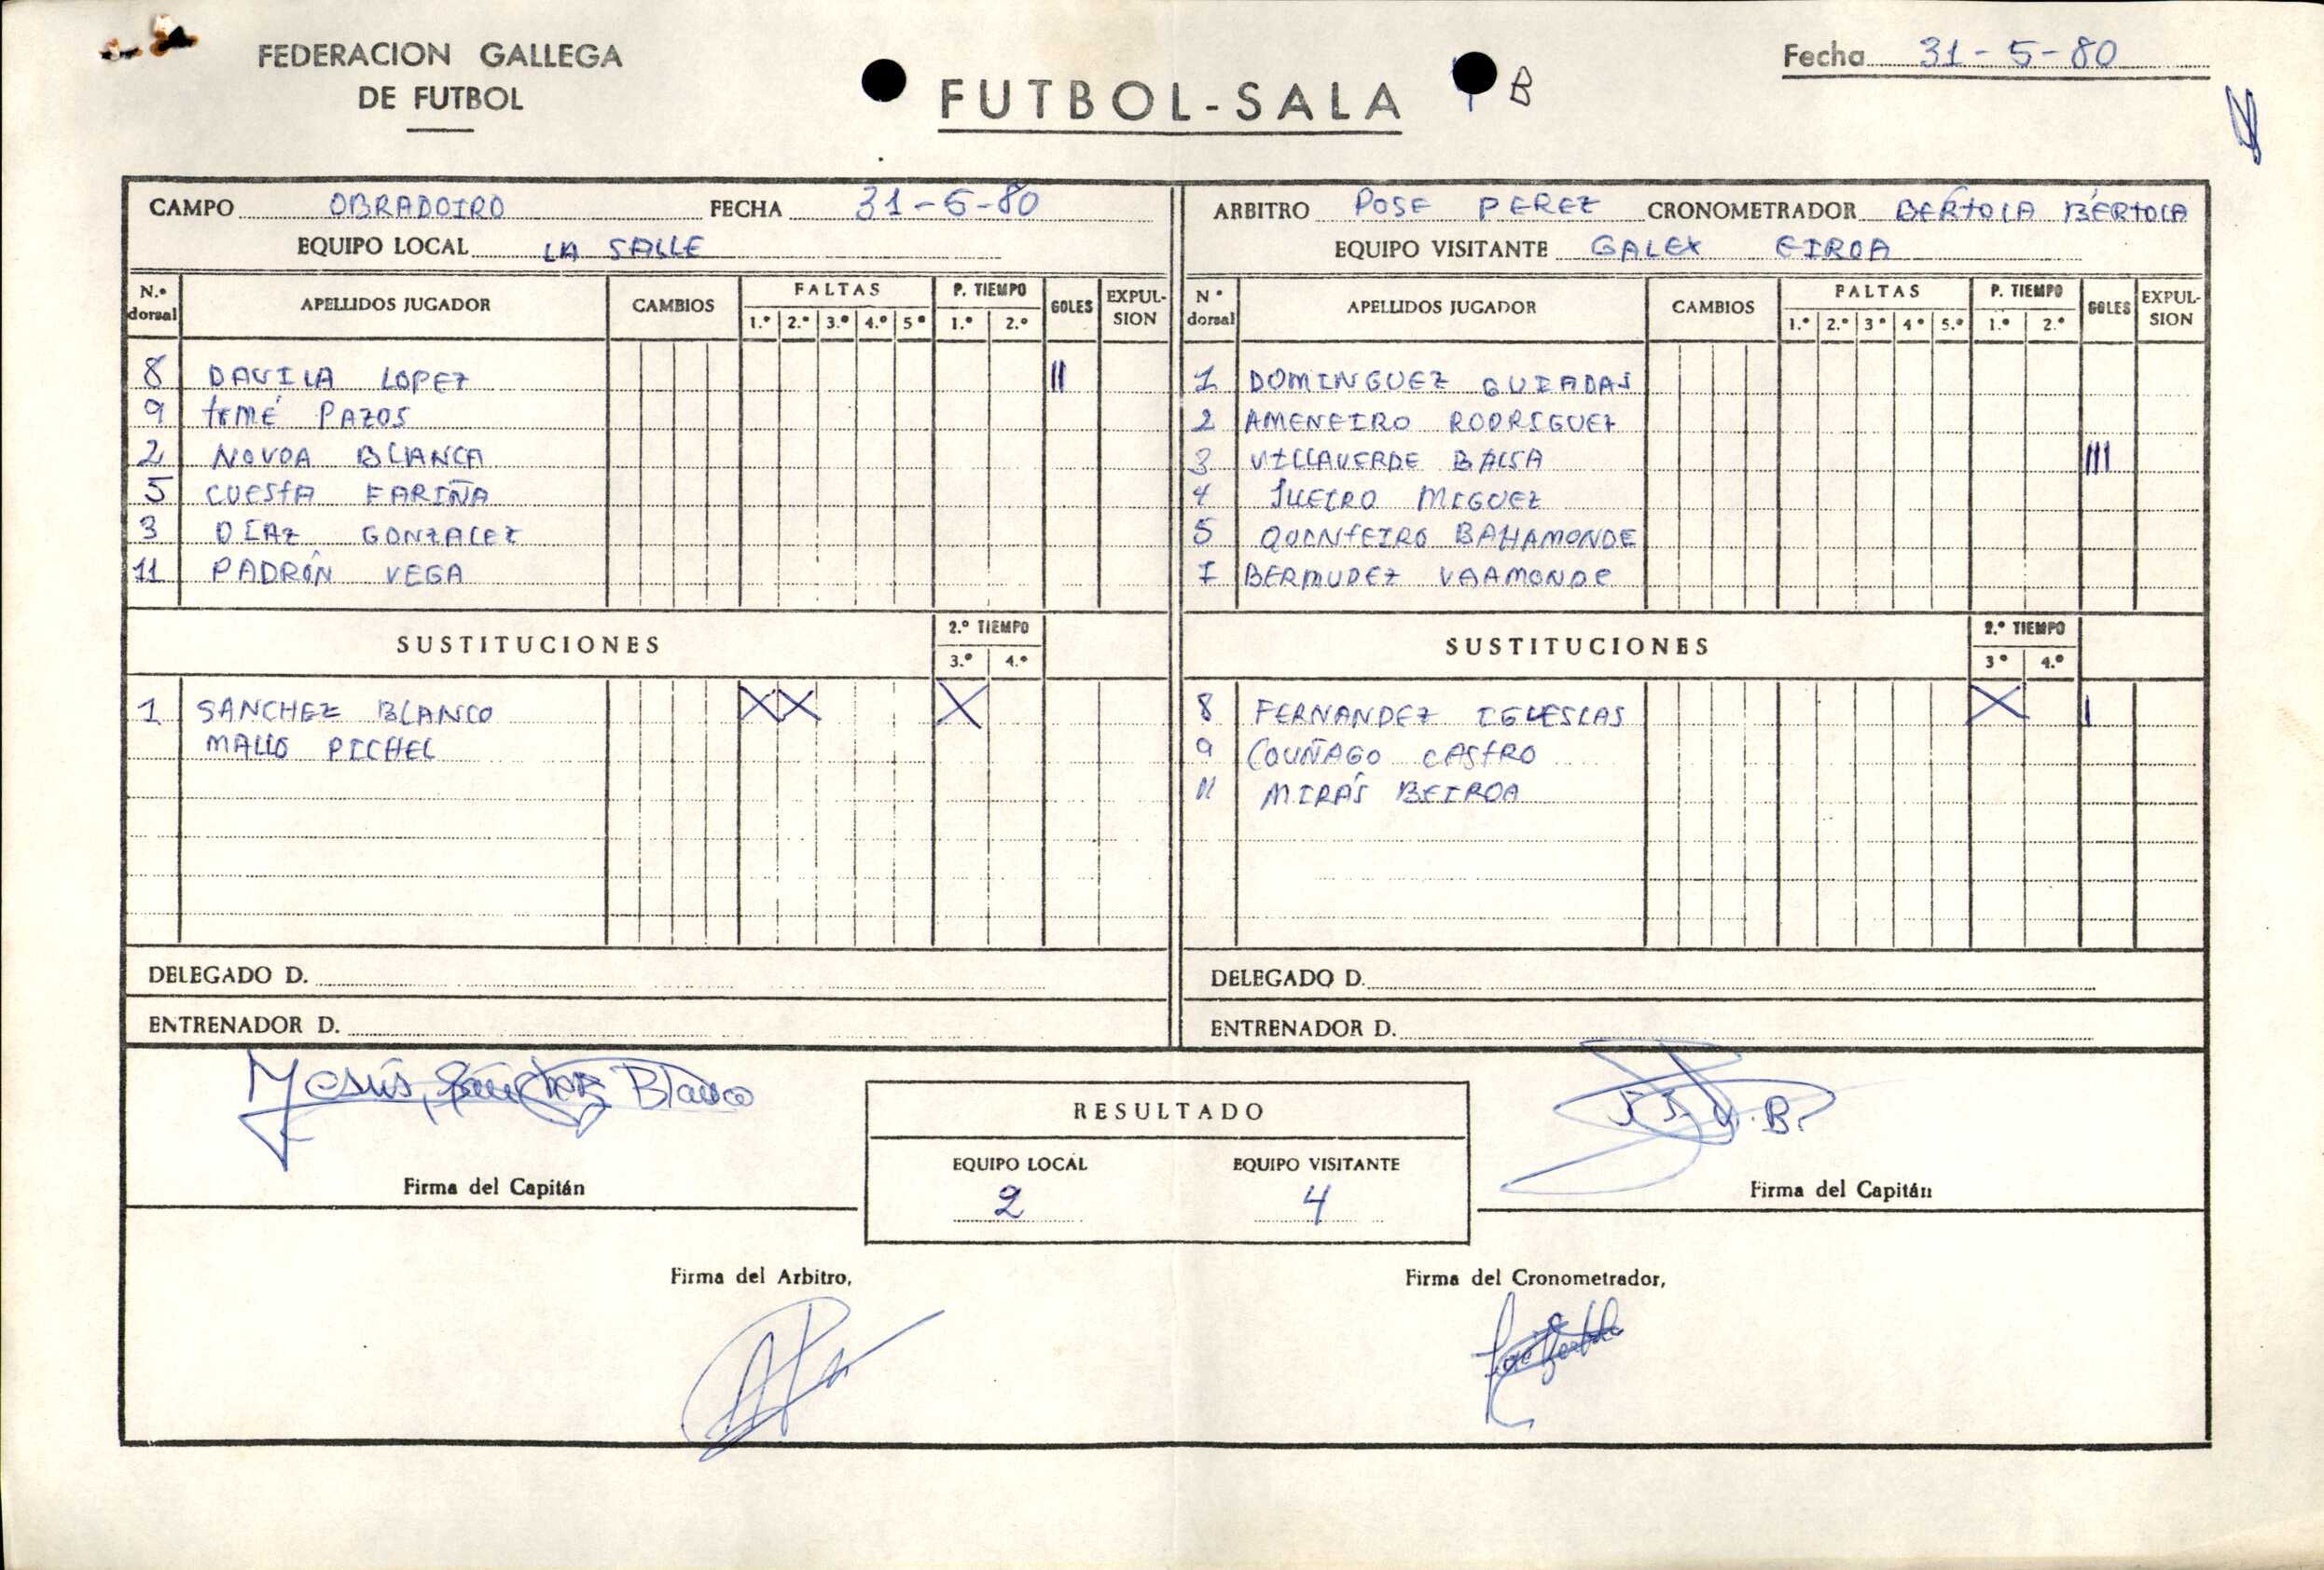 FEDERACION GALLEGA
DE FUTBOL
FUTBOL-SALA
B
Fecha 31-5-80
CAMPO OBRADOIRO FECHA 31-5-80
EQUIPO LOCAL LA SALLE
N.º dorsal APELLIDOS JUGADOR CAMBIOS FALTAS 1.º 2.º 3.º 4.º 5º P. TIEMPO 1.º 2.º GOLES EXPUL-SION
8 DAVILA LOPEZ II
9 TEMÉ PAZOS
2 NOVOA BLANCA
5 CUESTA FARIÑA
3 DIAZ GONZALEZ
11 PADRÓN VEGA
SUSTITUCIONES 2.º TIEMPO 3.º 4.º
1 SANCHEZ BLANCO X X X
MALLO PICHEL
DELEGADO D.
ENTRENADOR D.
ARBITRO POSE PEREZ CRONOMETRADOR BERTOLA BERTOLA
EQUIPO VISITANTE GALEX EIROA
N º dorsal APELLIDOS JUGADOR CAMBIOS FALTAS 1.º 2.º 3º 4º 5.º P. TIEMPO 1.º 2.º GOLES EXPUL-SION
1 DOMINGUEZ GUIADAS
2 AMENEIRO RODRIGUEZ
3 VILLAVERDE BALSA III
4 MIGUEZ
5 QUINTEIRO BAHAMONDE
7 BERMUDEZ VAAMONDE
SUSTITUCIONES 2.º TIEMPO 3º 4.º
8 FERNANDEZ IGLESIAS X I
9 COUÑAGO CASTRO
11 MIRÁS BEIROA
DELEGADO D.
ENTRENADOR D.
Jesús Sánchez Blanco
Firma del Capitán
RESULTADO
EQUIPO LOCAL EQUIPO VISITANTE
2 4
J.J. V. B.
Firma del Capitán
Firma del Arbitro,
Firma del Cronometrador,